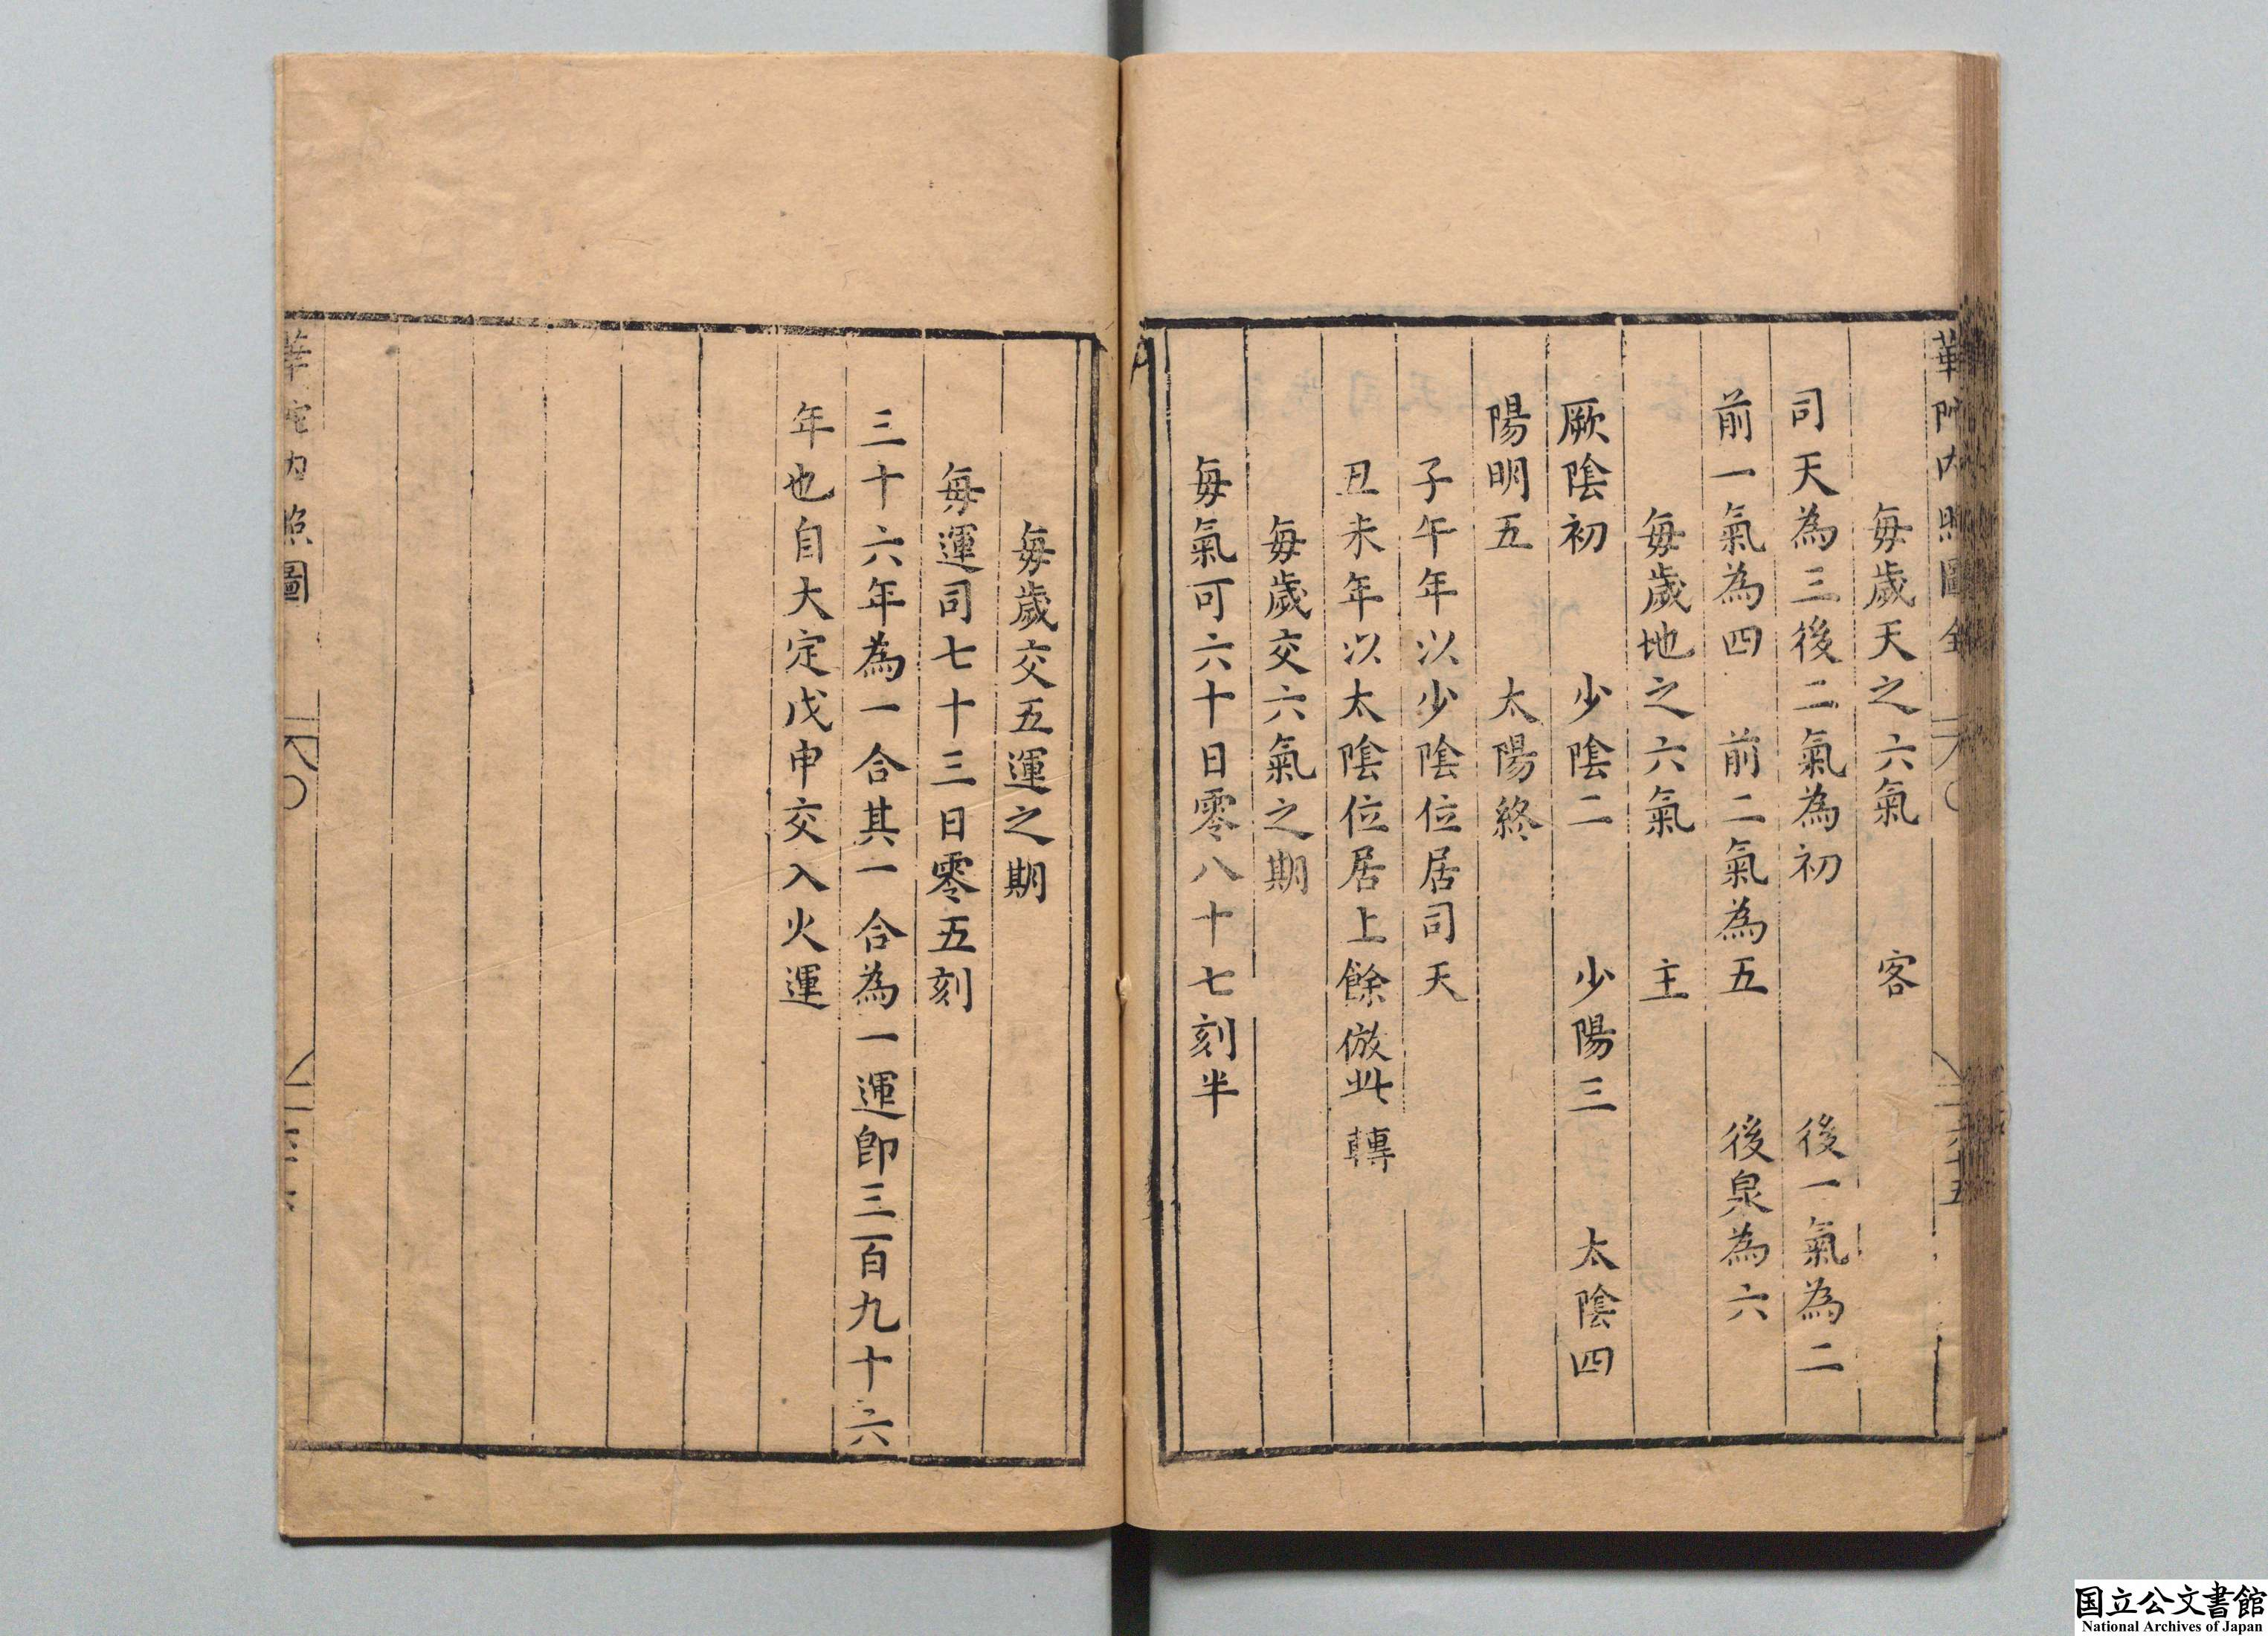 每歲天之六氣　客
司天為三後二氣為初　後一氣為二
前一氣為四　前二氣為五　後泉為六
每歲地之六氣　主
厥陰初　少陰二　少陽三　太陰四
陽明五　太陽終
子午年以少陰位居司天
丑未年以太陰位居上餘倣此轉
每歲交六氣之期
每氣可六十日零八十七刻半
每歲交五運之期
每運司七十三日零五刻
三十六年為一合其一合為一運即三百九十六
年也自大定戊申交入火運
照圖
国立公文書館
National Archives of Japan